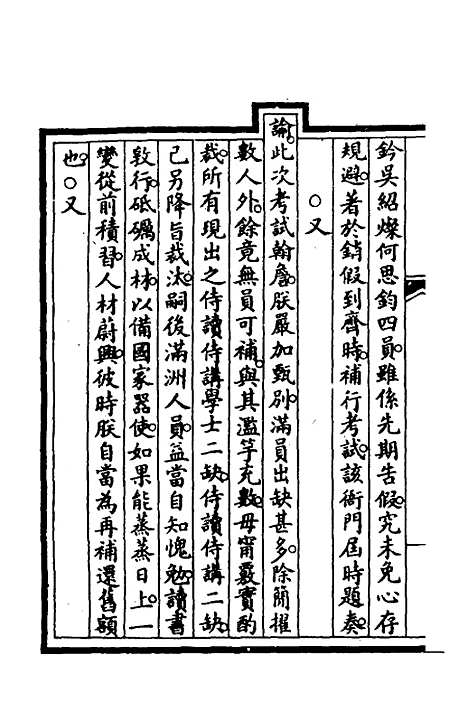 鈐吳紹燦何思鈞四員雖係先期告假究未免心存
規避著於銷假到齊時補行考試該衙門屆時題奏
○又
諭此次考試翰詹朕嚴加甄別滿員出缺甚多除簡擢
數人外餘竟無員可補與其濫竽充數毋甯覈實酌
裁所有現出之侍讀侍講學士二缺侍讀侍講二缺
已另降旨裁汰嗣後滿洲人員益當自知愧勉讀書
敦行砥礪成材以備國家器使如果能蒸蒸日上一
變從前積習人材蔚興彼時朕自當為再補還舊額
也○又